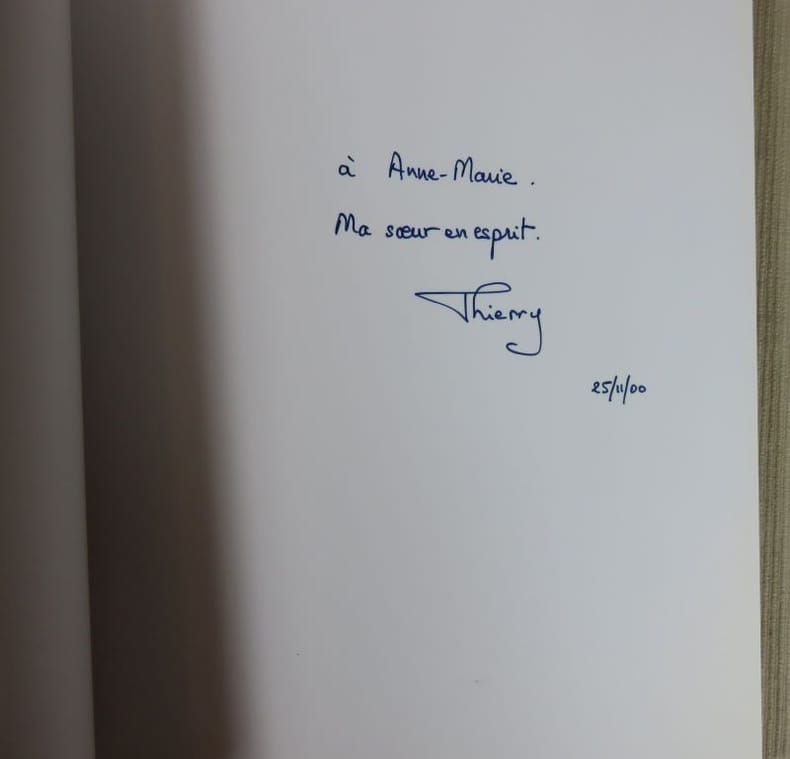 à Anne-Marie.
Ma sœur en esprit.
Thierry
25/11/00